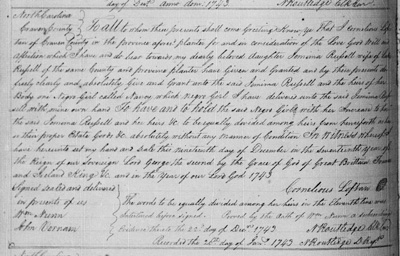 day of Jany Anno dom. 1743 N Routledge Clk Cur
North Carolina
Craven County To all to whom these presents shall come Greeting Know ye That I Cornelius
ton of Craven County in the province afores'd planter for and in consideration of the Love Good Will and
affection which I have and do bear towards my dearly beloved daughter Jemima Russell wife of
Russell of the same County and province planter have Given and Granted and by these presents do
freely clearly and absolutely Give and Grant unto the said Jemima Russell and the heirs of her
Body one Negro Girl called which Negro Girl I have delivered unto the said Jemima
sell with mine own hand To Have and to hold the said Negro with her Increase to her
the said Jemima Russell and her heirs &c to be equally divided among heirs from henceforth as
in their proper Estate Goods &c absolutely without any manner of Condition In Witness whereof I
have hereunto set my hand and Seale this nineteenth day of December in the Seventeenth year of
the Reign of our Sovereign Lord George the second by the Grace of God of Great Britain France
and Ireland King &c and in the year of our Lord God 1743
Signed sealed and delivered Cornelius Loftus
in presents of us The words to be equally divided among her heirs in the Eleventh line was
Wm Nunn interlined before signed. Proved by the Oath of Wm Nunn a subscribing
John Vernam Evidence thereto the 22d day of Decr 1743 N Routledge
Recorded the 26th day of Jany 1743 N Routledge